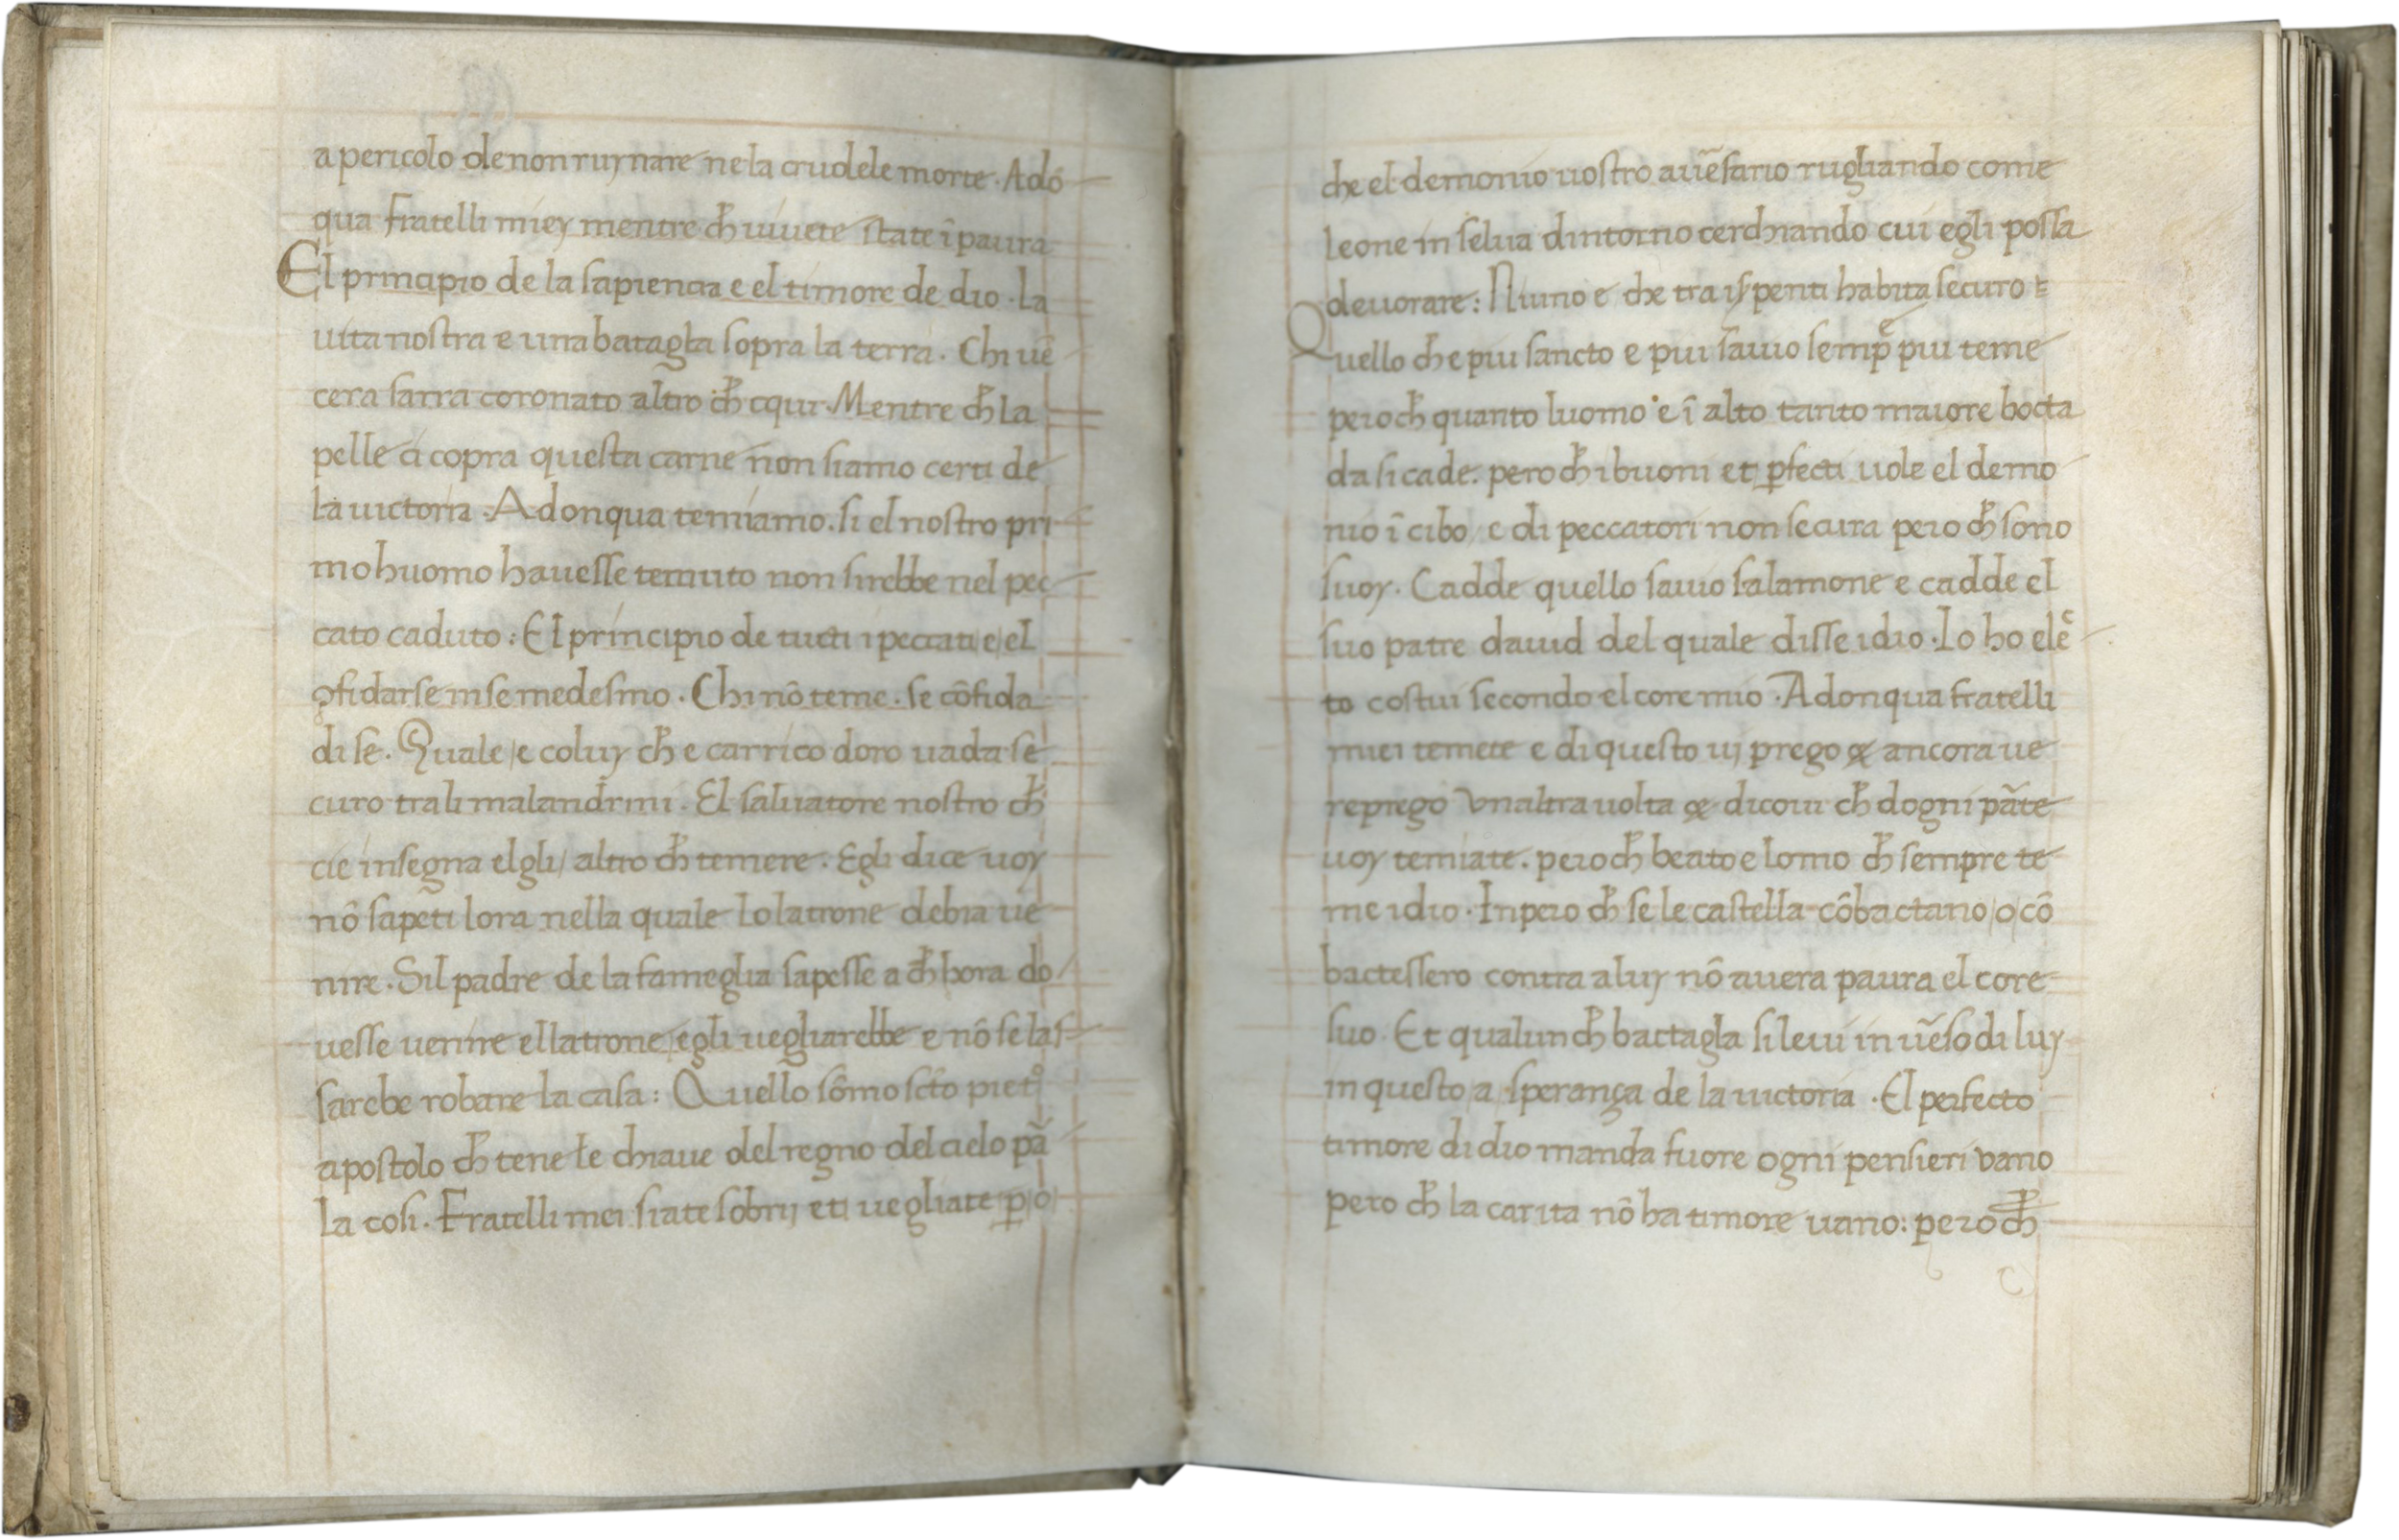 a pericolo de non ruynare ne la crudele morte · Adō
qua fratelli miey mentre ch̄ uiuete state ī paura
El principio de la sapiencia e el timore de dio · la
uita nostra e una batagl̄a sopra la terra . Chi uē
cera sarra coronato altro ch̄ cqui · Mentre ch̄ la
pelle ci copra questa carne non siamo certi de
la uictoria · Adonqua temiamo . si el nostro pri
mo huomo hauesse temuto non sirebbe nel pec
cato caduto : El principio de tucti i peccati / e / el
ꝯfidarse in se medesmo . Chi nō teme . se cōfida
di se . Quale / e coluy ch̄ e carrico doro uada se
curo tra li malandrini . El saluatore nostro ch̄
cie insegna elgli / altro ch̄ temere . Egli dice uoy
nō sapeti lora nella quale lo latrone debia ue
nire . Sil padre de la fameglia sapesse a ch̄ hora do
uesse uenire el latrone / egli uegliarebbe e nō se las
sarebe robare la casa : Quello sōmo sc̄to pietº
apostolo ch̄ tene le chiaue del regno del cielo pā
la cosi . Fratelli mei siate sobrij et uegliate ꝑ / o /
che el demonio uostro auēsario rugliando come
leone in selua dintorno cerchando cui egli possa
deuorare : Niuno e che tra i sꝑenti habita securo :
Quello ch̄ e piu sancto e piu sauio semp̄ piu teme
pero ch̄ quanto luomo e ī alto tanto maiore bocta
da si cade . pero ch̄ i buoni et ꝑfecti uole el demo
nio ī cibo / e di peccatori non se cura pero ch̄ sono
suoy . Cadde quello sauio salamone e cadde el
suo patre dauid del quale disse idio · Io ho elec
to costui secondo el core mio · Adonqua fratelli
miei temete e di questo uij prego & ancora ue
reprego vnaltra uolta & dicoui ch̄ dogni pāte
uoy temiate . pero ch̄ beato e lomo ch̄ sempre te
me idio · Inpero ch̄ se le castella cōbactano / o / cō
bactessero contra a luy nō auera paura el core
suo . Et qualunch̄ bactagl̄a si leui in uēso di luy
in questo / a sperança de la uictoria · El perfecto
timore di dio manda fuore ogni pensieri vano
pero ch̄ la carita nō ha timore uano : pero ch̄